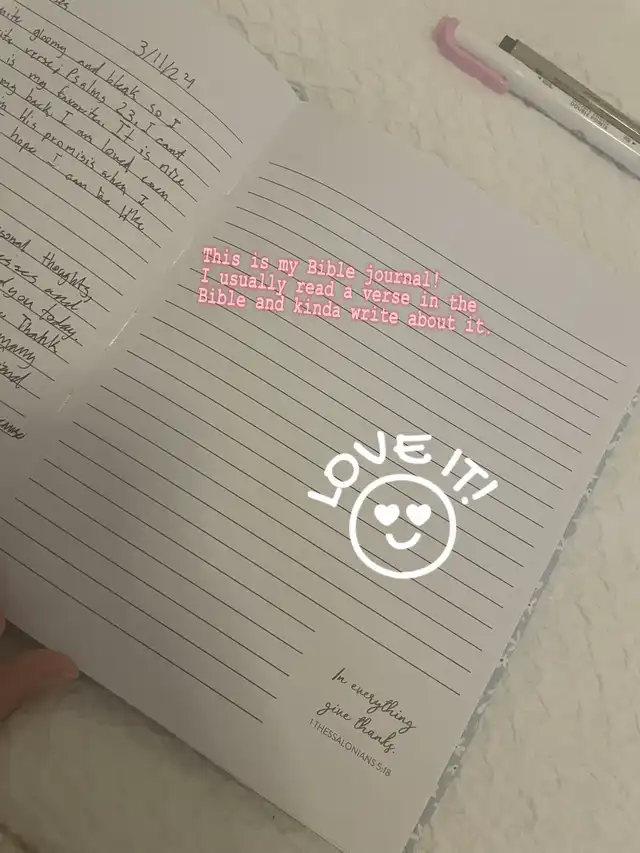 3/11/24
gloomy and bleak so I
verse; Psalms 23. I cant
is my favorite. It is nice
my back. I am loved even
his promisis when I
hope I can be like
thoughts,
and
you today.
Thank
many
This is my Bible journal!
I usually read a verse in the
Bible and kinda write about it.
LOVE IT!
In everything
give thanks.
1 THESSALONIANS 5:18